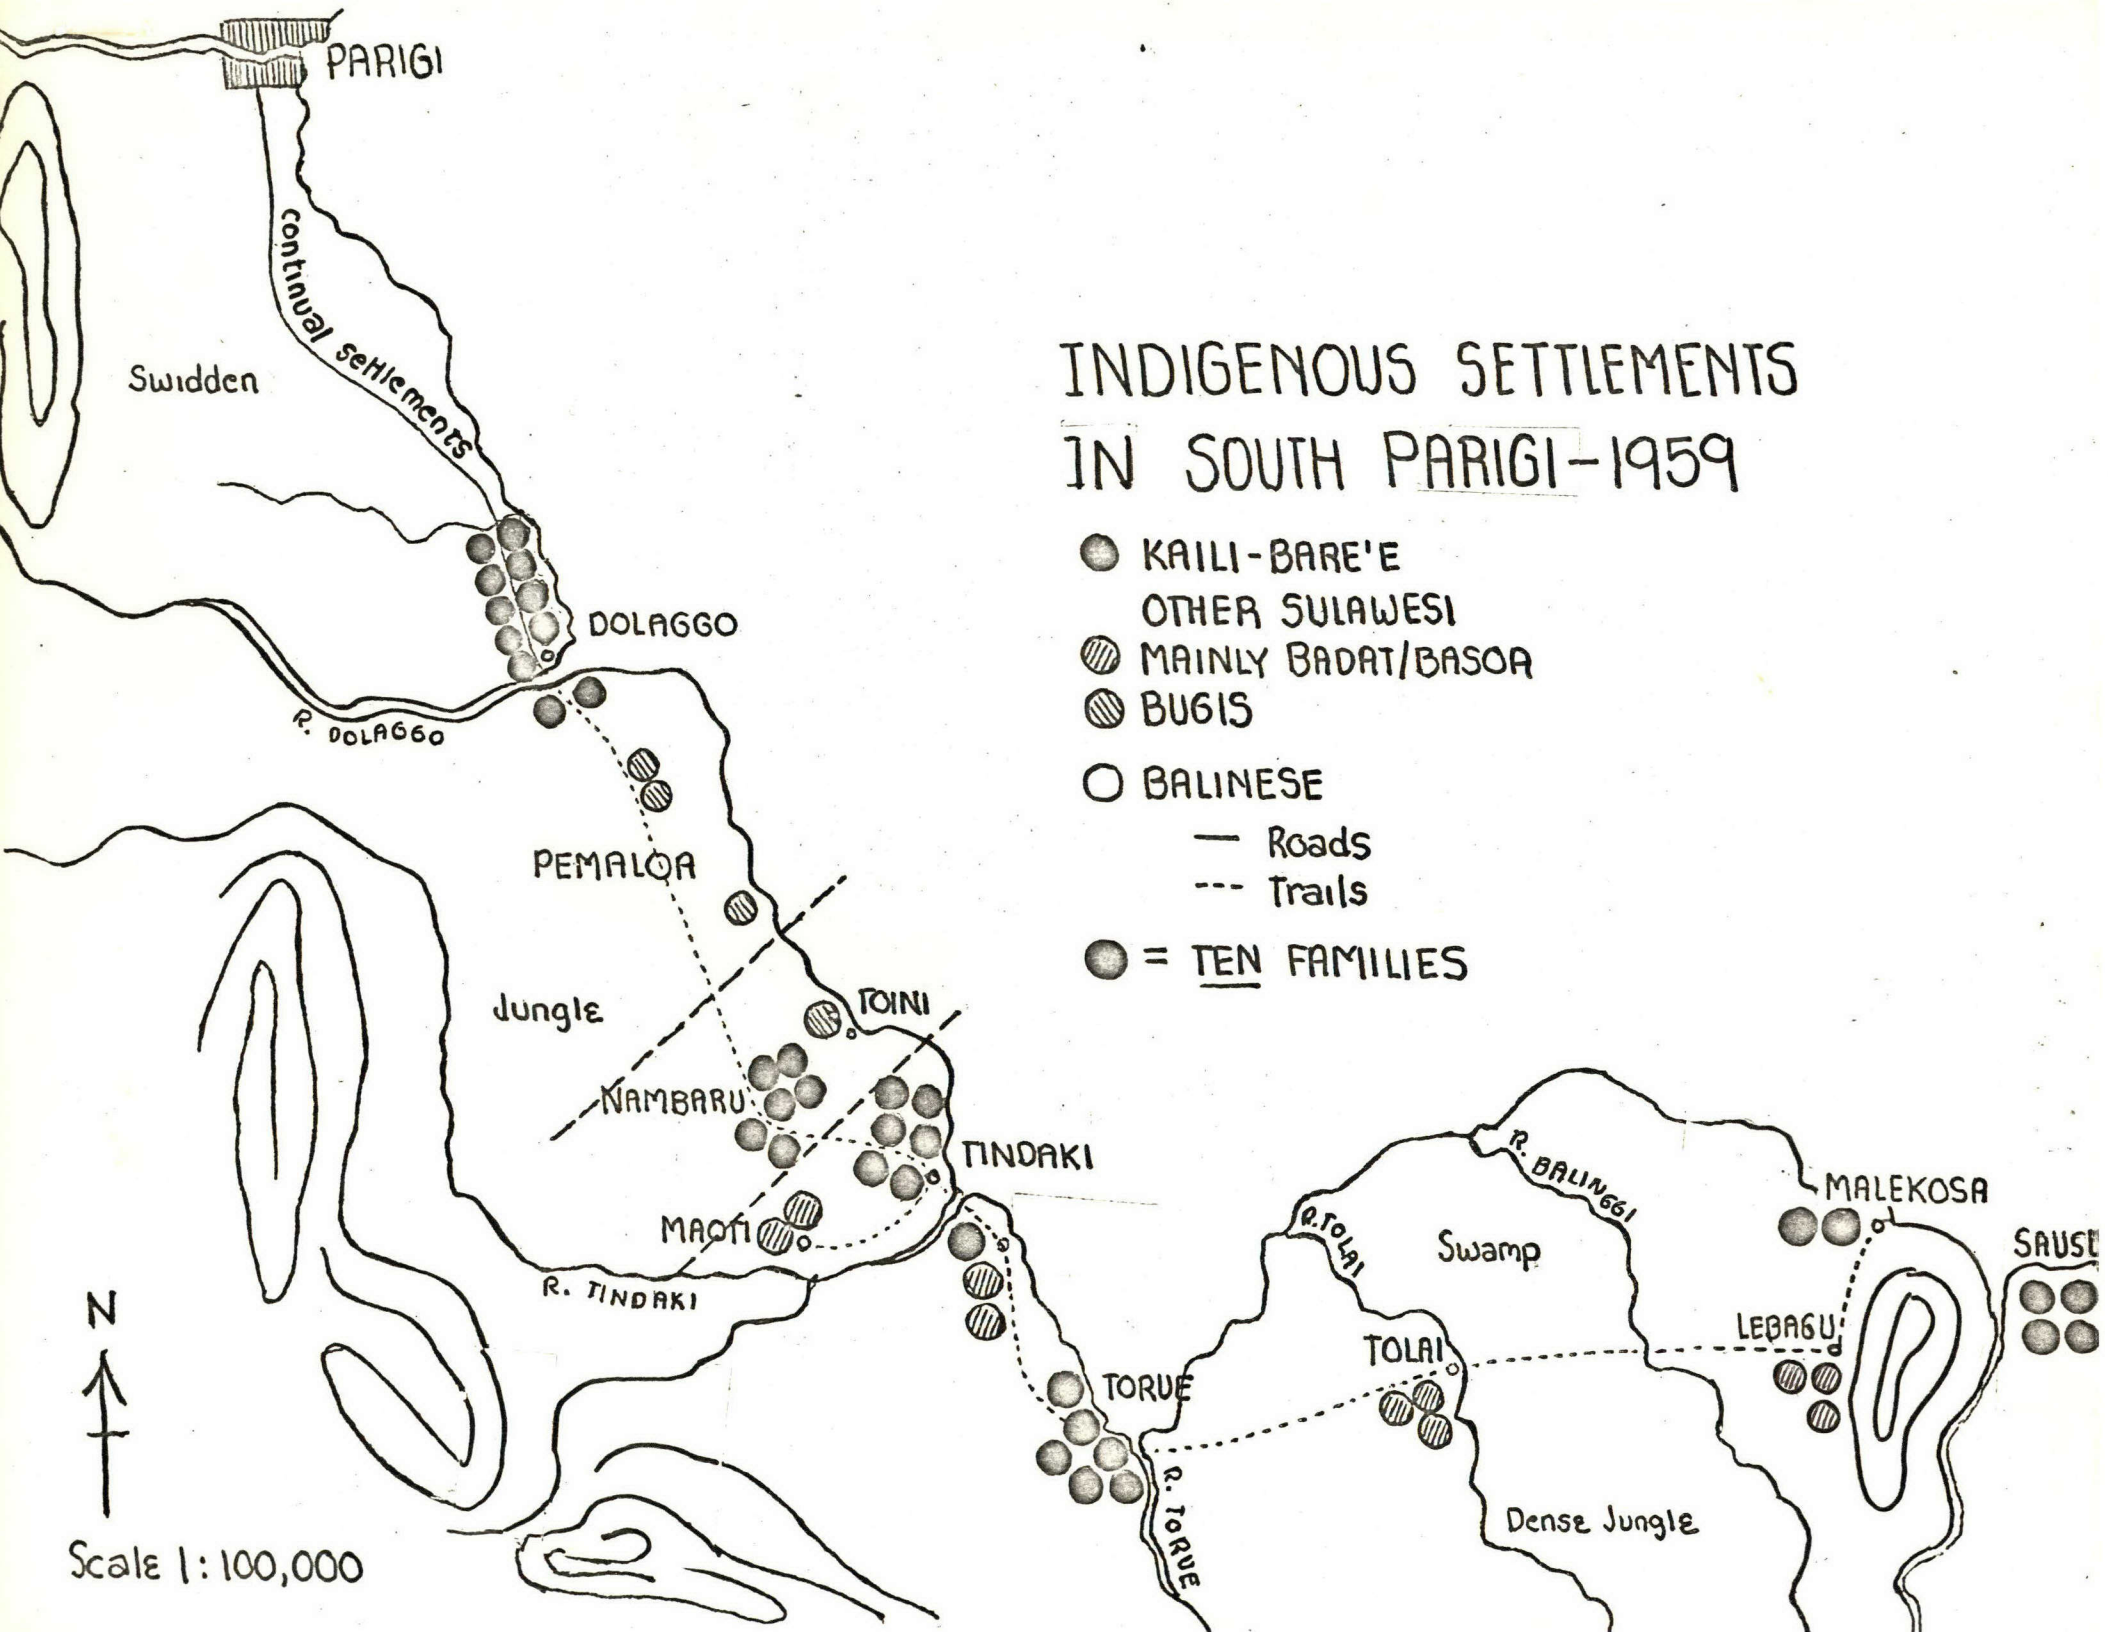 PARIGI
continual settlements
Swidden
INDIGENOUS SETTLEMENTS
IN SOUTH PARIGI-1959
KAILI-BARE'E
OTHER SULAWESI
MAINLY BADAT/BASOA
BUGIS
BALINESE
— Roads
--- Trails
= TEN FAMILIES
DOLAGGO
R. DOLAGGO
PEMALOA
Jungle
TOINI
NAMBARU
TINDAKI
MAOTI
R. TINDAKI
R. BALINGGI
MALEKOSA
R. TOLAI
Swamp
SAUSU
LEBAGU
TOLAI
TORUE
R. TORUE
Dense Jungle
N
Scale 1:100,000